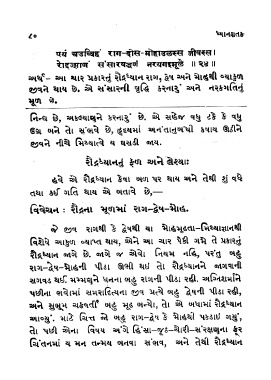 ૮૦ ધ્યાનશતક
एयं चउव्विहं राग-दोस-मोहाउलस्स जीवस्स।
रोद्दज्झाणं संसारवद्धणं नरयगइमूलं ॥ २४॥
અર્થ:- આ ચાર પ્રકારનું રૌદ્રધ્યાન રાગ, દ્વેષ અને મોહથી વ્યાકુળ
જીવને થાય છે. એ સંસારની વૃદ્ધિ કરનારું અને નરકગતિનું
મૂળ છે.
નિન્દ્ય છે, અકલ્યાણને કરનારું છે. એ સહેજ વધુ ટકે કે વધુ
ઉગ્ર બને તો સંભવે છે, હૃદયમાં અનંતાનુબંધી કષાય ઊઠીને
જીવને નીચે મિથ્યાત્વે ય ઘસડી જાય.
રૌદ્રધ્યાનનું ફળ અને લેશ્યા:
હવે એ રૌદ્રધ્યાન કેવા બળ પર થાય અને તેથી શું વધે
તથા કઈ ગતિ થાય એ બતાવે છે,—
વિવેચન : રૌદ્રના મૂળમાં રાગ-દ્વેષ-મોહ.
જે જીવ રાગથી કે દ્વેષથી યા મોહમૂઢતા-મિથ્યાજ્ઞાનથી
વિશેષે આકુળ વ્યાપ્ત થાય, એને આ ચાર પૈકી ગમે તે પ્રકારનું
રૌદ્રધ્યાન જાગે છે. જાગે જ એવો નિયમ નહિ, પરંતુ બહુ
રાગ-દ્વેષ-મોહની પીડા ઊભી થઈ તો રૌદ્રધ્યાનને જાગવાની
સગવડ થઈ. મમ્મણને ધનના બહુ રાગની પીડા રહી. અગ્નિશર્માને
પછીના ભવોમાં સમરાદિત્યના જીવ પ્રત્યે બહુ દ્વેષની પીડા રહી.
અને સુભૂમ ચક્રવર્તી બહુ મૂઢ બન્યો; તો એ બધામાં રૌદ્રધ્યાન
આવ્યું. માટે ચિત્ત જો બહુ રાગ-દ્વેષ કે મોહથી પકડાઈ ગયું,
તો પછી એના વિષય અંગે હિંસા-જૂઠ-ચોરી-સંરક્ષણના ક્રૂર
ચિંતનમાં ય મન તન્મય બનવા સંભવ, અને તેથી રૌદ્રધ્યાન